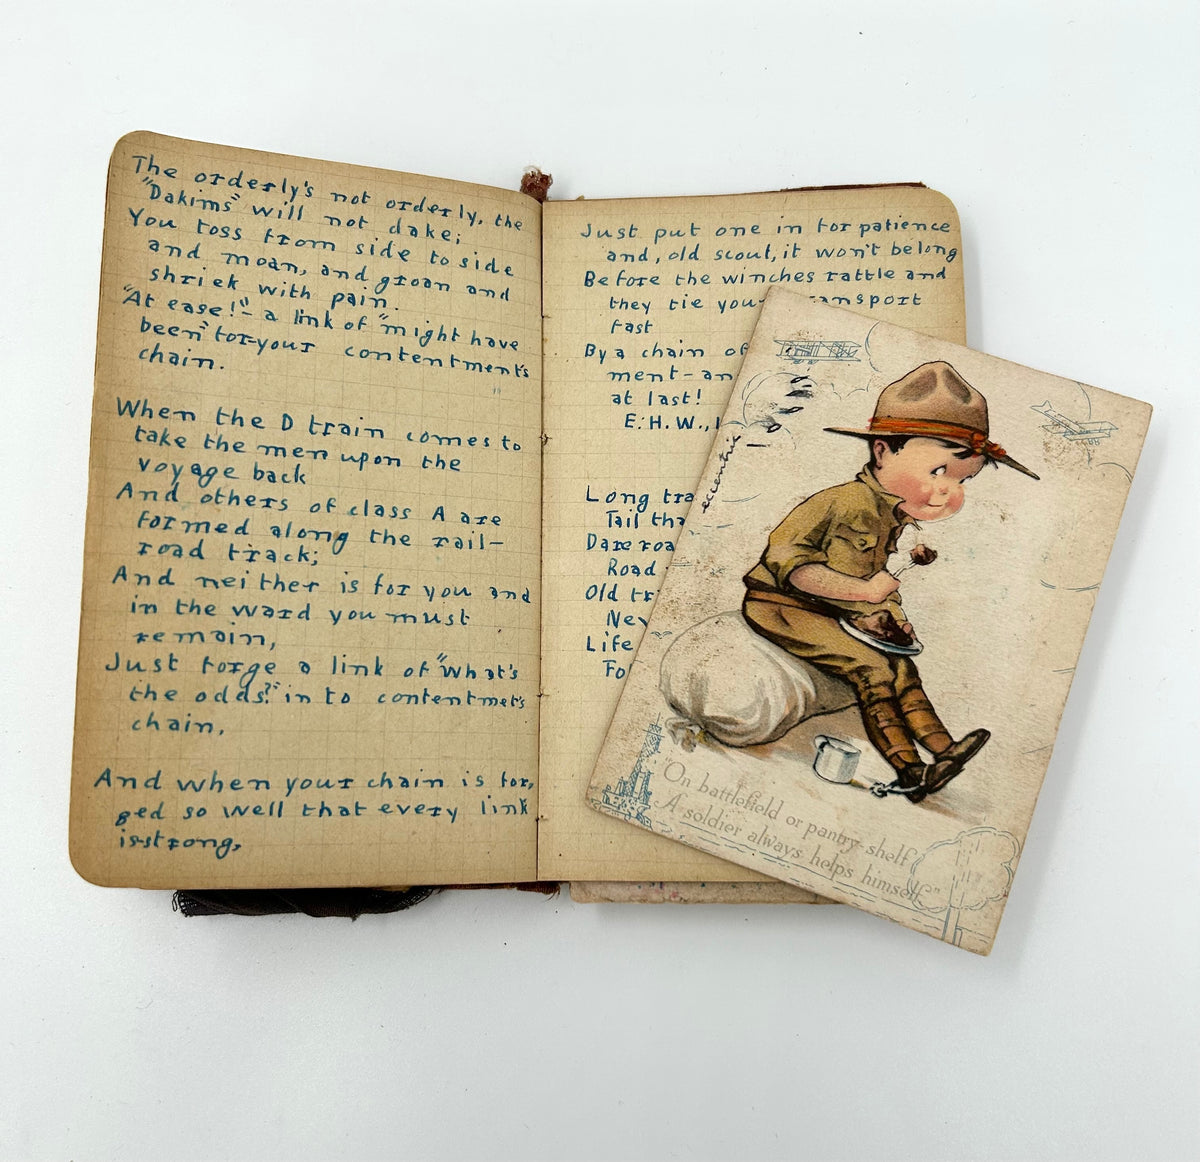 The orderly's not orderly, the
"Dakims" will not dake;
You toss from side to side
and moan, and groan and
shriek with pain.
"At ease!"- a link of "might have
been" for your contentment's
chain.
When the D train comes to
take the men upon the
voyage back
And others of class A are
formed along the rail-
road track;
And neither is for you and
in the ward you must
remain,
Just forge a link of "What's
the odds?" in to contentmet's
chain.
And when your chain is for,
ged so well that every link
is strong,
Just put one in for patience
and, old scout, it won't belong
Before the winches rattle and
they tie your
fast
By a chain of
ment-
at last!
E. H. W.,
Long
Tail
Dare
Road
Old
Life
eccentric
"On battlefield or pantry shelf
A soldier always helps himself."